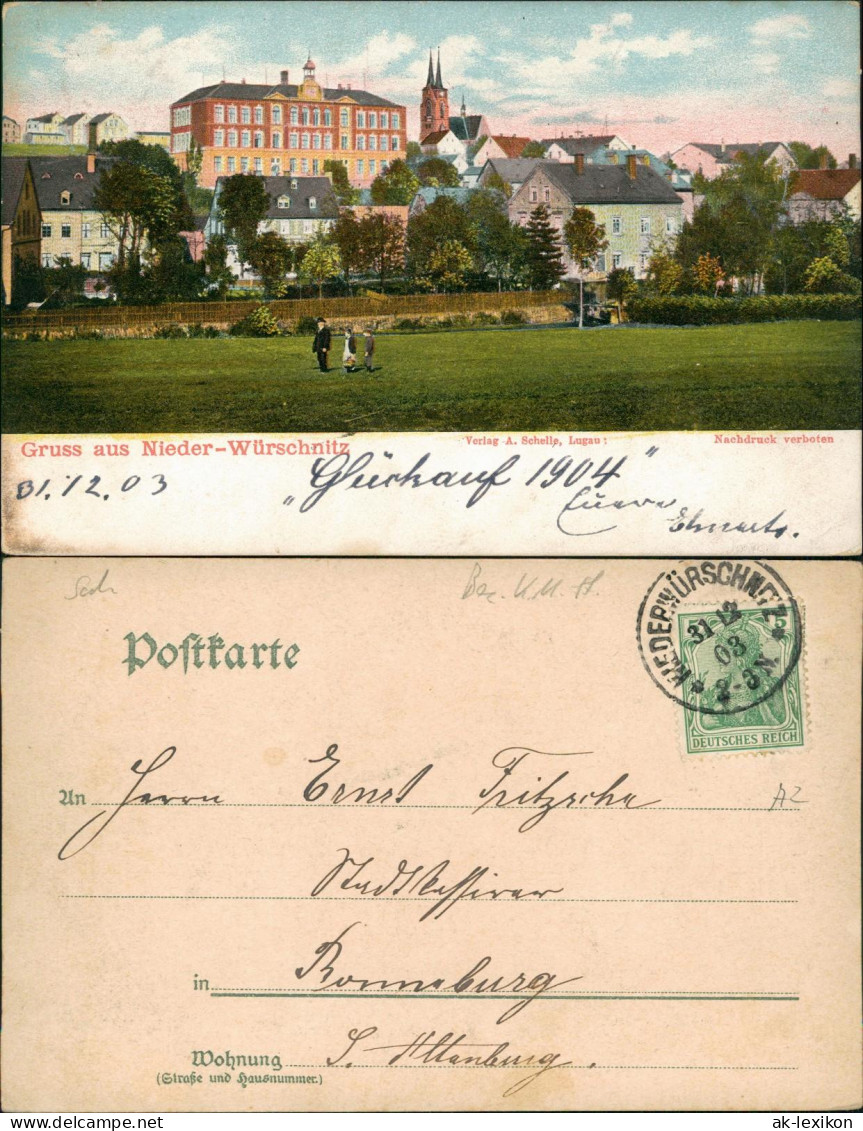 Gruss aus Nieder-Würschnitz
Verlag A. Schelle, Lugau:
Nachdruck verboten
31.12.03
„Glückauf 1904"
Euere
Postkarte
NIEDERWÜRSCHNITZ
31 12
03
2-3N.
5
DEUTSCHES REICH
An Herrn Ernst Fritzsche
Stadtkassirer
in Ronneburg
Wohnung S. Altenburg.
(Straße und Hausnummer.)
A2
ak-lexikon